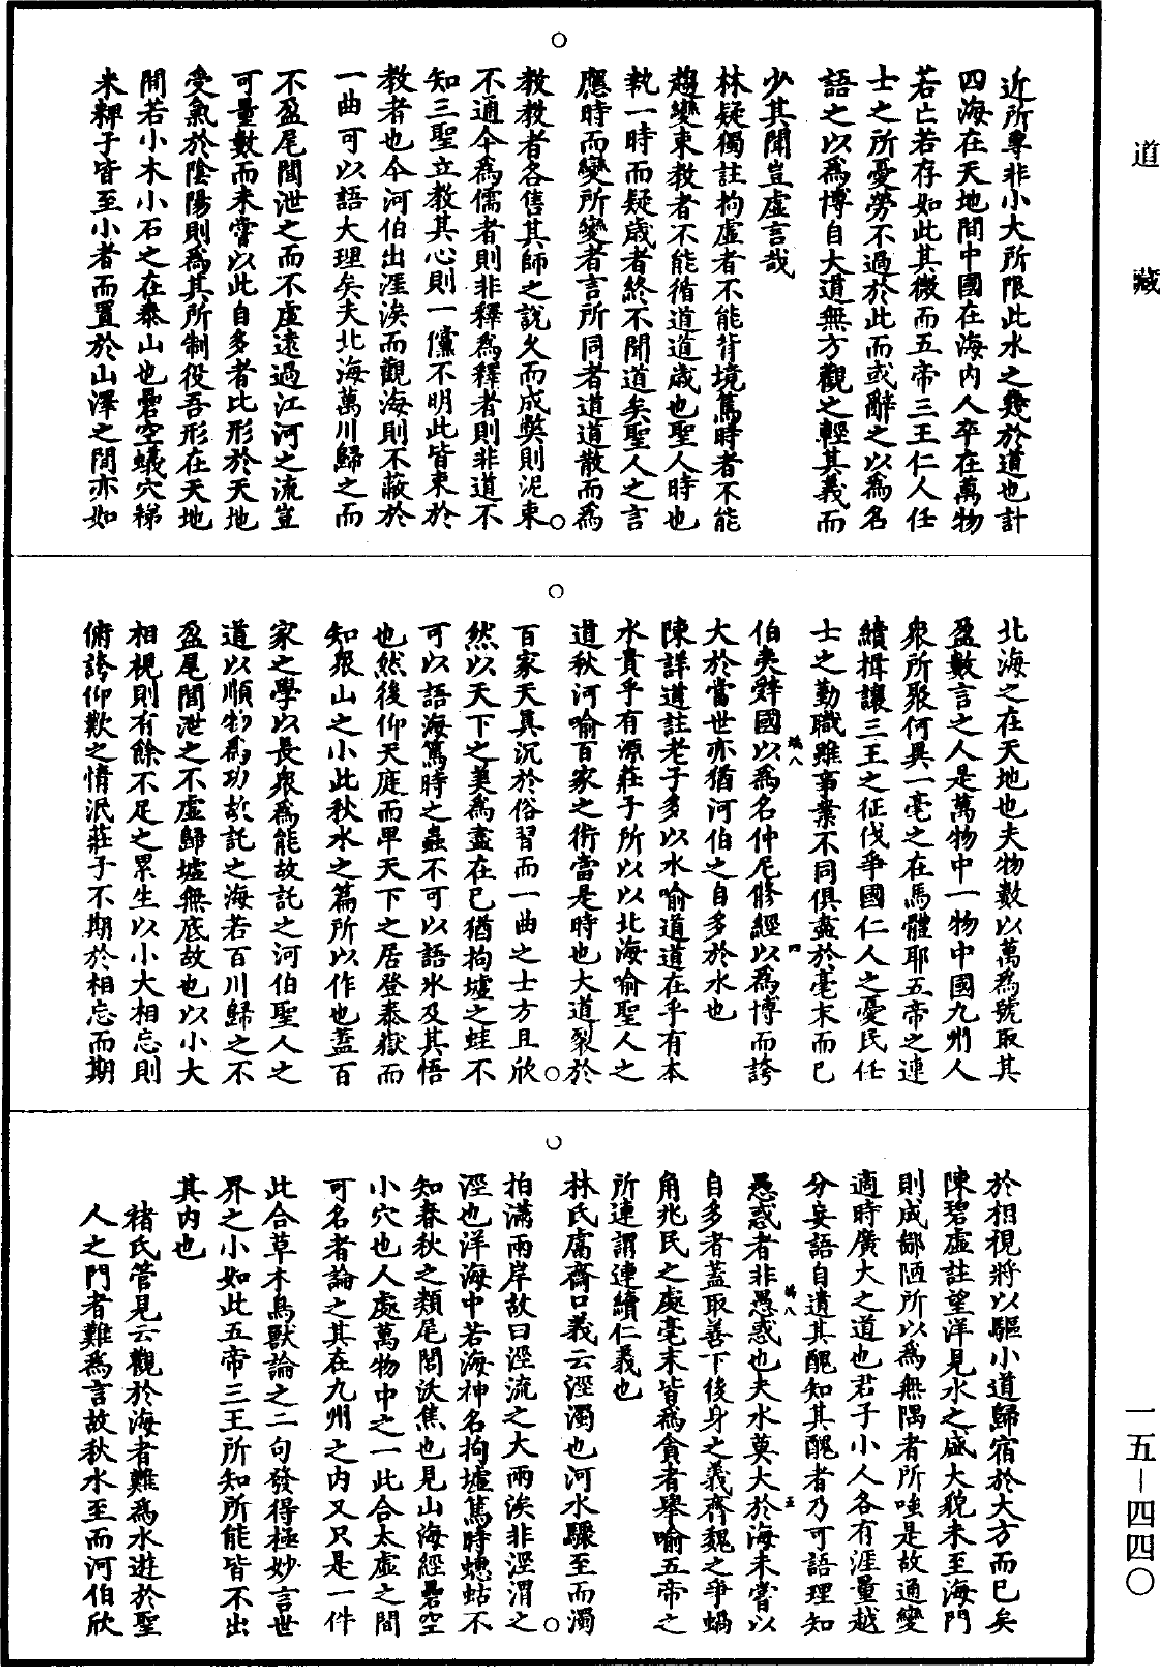 道藏
近所專非小大所限此水之幾於道也計
四海在天地間中國在海內人卒在萬物
若亡若存如此其微而五帝三王仁人任
士之所憂勞不過於此而或辭之以爲名
語之以爲博自大道無方觀之輕其義而
少其聞豈虛言哉
林疑獨註拘虛者不能背境篤時者不能
趨變束教者不能循道道歲也聖人時也
執一時而疑歲者終不聞道矣聖人之言
應時而變所變者言所同者道道散而爲
教教者各售其師之說久而成獘則泥束
不通今爲儒者則非釋爲釋者則非道不
知三聖立教其心則一儻不明此皆束於
教者也今河伯出涯涘而觀海則不蔽於
一曲可以語大理矣夫北海萬川歸之而
不盈尾閭泄之而不虛遠過江河之流豈
可量數而未嘗以此自多者比形於天地
受氣於陰陽則爲其所制役吾形在天地
間若小木小石之在泰山也礨空蟻穴稊
米稗子皆至小者而置於山澤之間亦如
北海之在天地也夫物數以萬爲號取其
盈數言之人是萬物中一物中國九州人
衆所聚何異一毫之在馬體耶五帝之連
續揖讓三王之征伐爭國仁人之憂民任
士之勤職雖事業不同俱盡於毫末而已
伯夷辭國以爲名仲尼脩經以爲博而誇
大於當世亦猶河伯之自多於水也
陳詳道註老子多以水喻道道在乎有本
水貴乎有源莊子所以以北海喻聖人之
道秋河喻百家之術當是時也大道裂於
百家天真沉於俗習而一曲之士方且欣
然以天下之美爲盡在已猶拘墟之蛙不
可以語海篤時之蟲不可以語冰及其悟
也然後仰天庭而卑天下之居登泰嶽而
知衆山之小此秋水之篇所以作也蓋百
家之學以長衆爲能故託之河伯聖人之
道以順物爲功故託之海若百川歸之不
盈尾閭泄之不虛歸墟無底故也以小大
相視則有餘不足之累生以小大相忘則
俯誇仰歎之情泯莊子不期於相忘而期
於相視將以驅小道歸宿於大方而已矣
陳碧虛註望洋見水之盛大貌未至海門
則成鄙陋所以爲無隅者所嗤是故通變
適時廣大之道也君子小人各有涯量越
分妄語自遺其醜知其醜者乃可語理知
愚惑者非愚惑也夫水莫大於海未嘗以
自多者蓋取善下後身之義齊魏之爭蝸
角兆民之處毫末皆爲貪者舉喻五帝之
所連謂連續仁義也
林氏鬳齋口義云涇濁也河水驟至而濁
拍滿兩岸故曰涇流之大兩涘非涇渭之
涇也洋海中若海神名拘墟篤時蟪蛄不
知春秋之類尾閭沃焦也見山海經礨空
小穴也人處萬物中之一此合太虛之間
可名者論之其在九州之內又只是一件
此合草木鳥獸論之二句發得極妙言世
界之小如此五帝三王所知所能皆不出
其內也
褚氏管見云觀於海者難爲水遊於聖
人之門者難爲言故秋水至而河伯欣
一五－四四〇